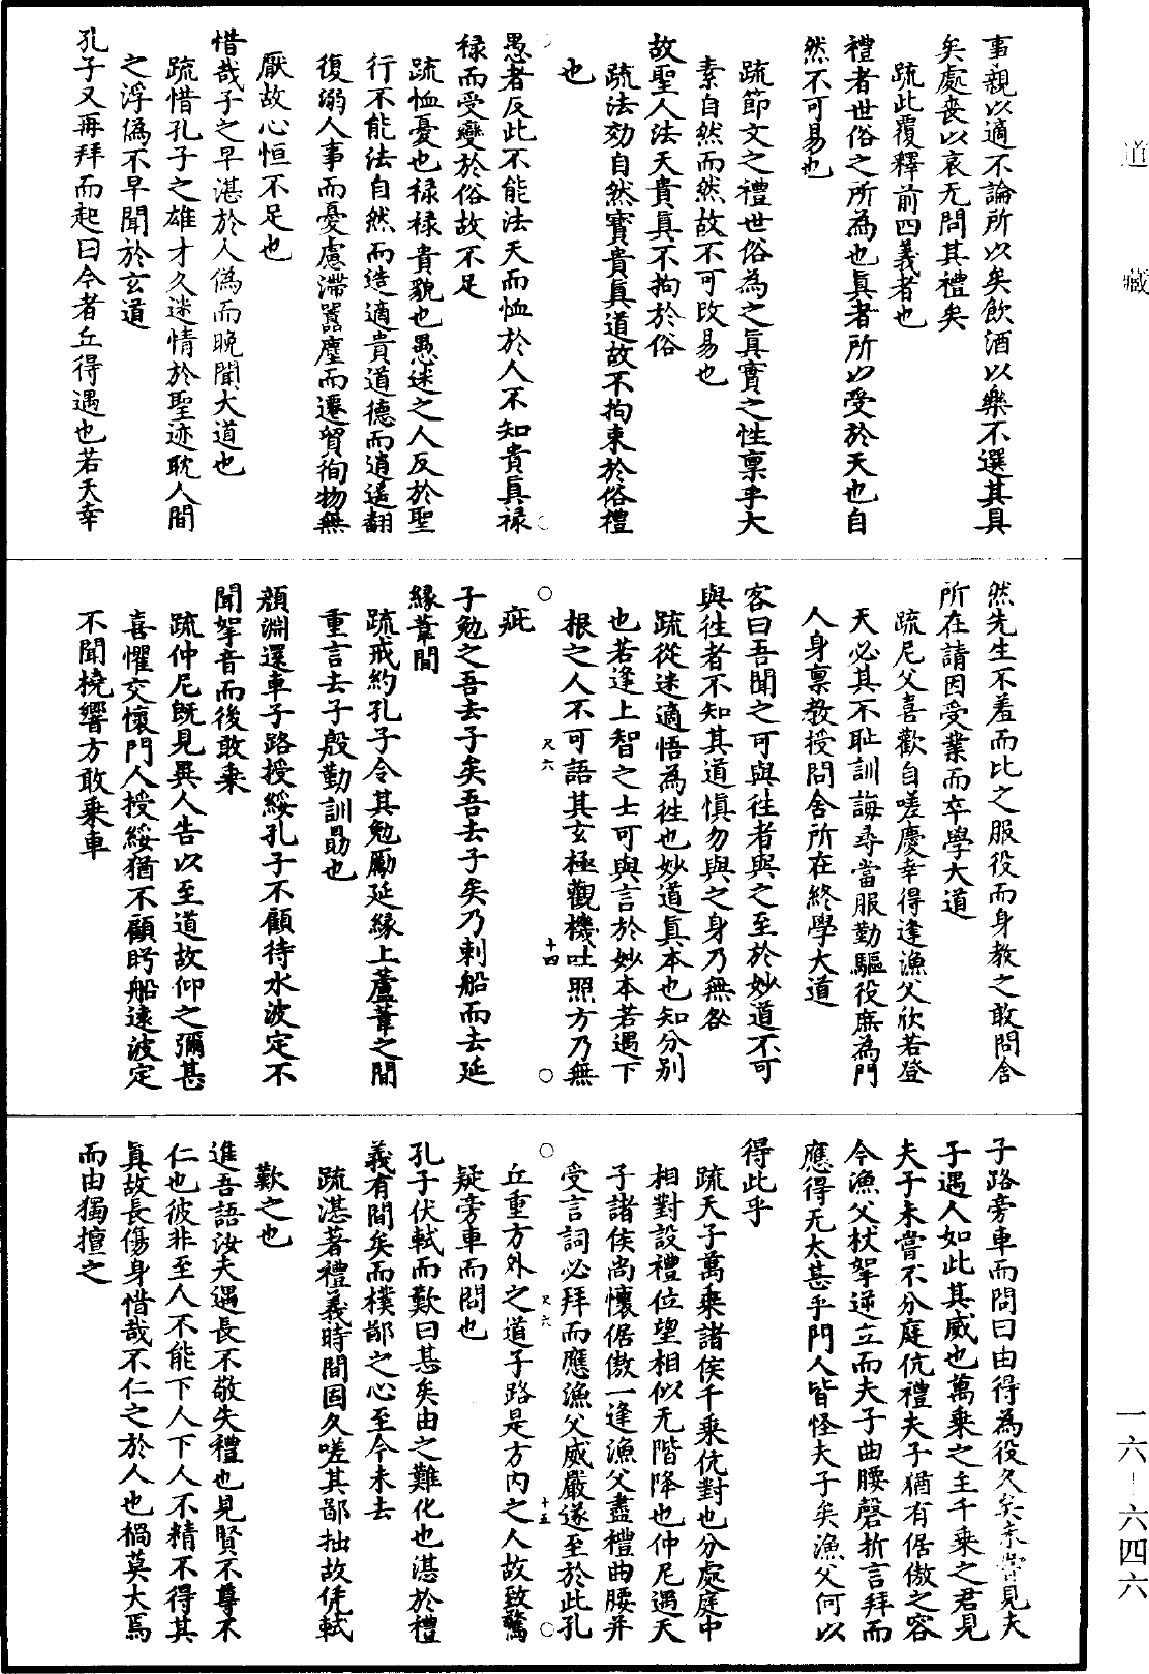 道藏
一六-六四六
事親以適不論所以矣飲酒以樂不選其具
矣處喪以哀无問其禮矣
疏此覆釋前四義者也
禮者世俗之所為也真者所以受於天也自
然不可易也
疏節文之禮世俗為之真實之性稟乎大
素自然而然故不可改易也
故聖人法天貴真不拘於俗
疏法効自然寶貴真道故不拘束於俗禮
也
愚者反此不能法天而恤於人不知貴真禄
禄而受變於俗故不足
疏恤憂也禄禄貴貌也愚迷之人反於聖
行不能法自然而造適貴道德而逍遥翻
復溺人事而憂慮滯囂塵而遷貿徇物無
厭故心恒不足也
惜哉子之早湛於人偽而晚聞大道也
疏惜孔子之雄才久迷情於聖迹耽人間
之浮偽不早聞於玄道
孔子又再拜而起曰今者丘得遇也若天幸
然先生不羞而比之服役而身教之敢問舍
所在請因受業而卒學大道
疏尼父喜歡自嗟慶幸得逢漁父欣若登
天必其不恥訓誨尋當服勤驅役庶為門
人身稟教授問舍所在終學大道
客曰吾聞之可與往者與之至於妙道不可
與往者不知其道慎勿與之身乃無咎
疏從迷適悟為往也妙道真本也知分別
也若逢上智之士可與言於妙本若遇下
根之人不可語其玄極觀機吐照方乃無
疵
尺六
十四
子勉之吾去子矣吾去子矣乃刺船而去延
緣葦間
疏戒約孔子令其勉勵延緣上蘆葦之間
重言去子殷勤訓勗也
顏淵還車子路授綏孔子不顧待水波定不
聞拏音而後敢乘
疏仲尼既見異人告以至道故仰之彌甚
喜懼交懷門人授綏猶不顧盻船遠波定
不聞橈響方敢乘車
子路旁車而問曰由得為役久矣未嘗見夫
子遇人如此其威也萬乘之主千乘之君見
夫子未嘗不分庭伉禮夫子猶有倨傲之容
今漁父杖拏逆立而夫子曲腰磬折言拜而
應得无太甚乎門人皆怪夫子矣漁父何以
得此乎
疏天子萬乘諸侯千乘伉對也分處庭中
相對設禮位望相似无階降也仲尼遇天
子諸侯尚懷倨傲一逢漁父盡禮曲腰并
受言詞必拜而應漁父威嚴遂至於此孔
尺六
十五
丘重方外之道子路是方內之人故致驚
疑旁車而問也
孔子伏軾而歎曰甚矣由之難化也湛於禮
義有間矣而樸鄙之心至今未去
疏湛著禮義時間固久嗟其鄙拙故凭軾
歎之也
進吾語汝夫遇長不敬失禮也見賢不尊不
仁也彼非至人不能下人下人不精不得其
真故長傷身惜哉不仁之於人也禍莫大焉
而由獨擅之